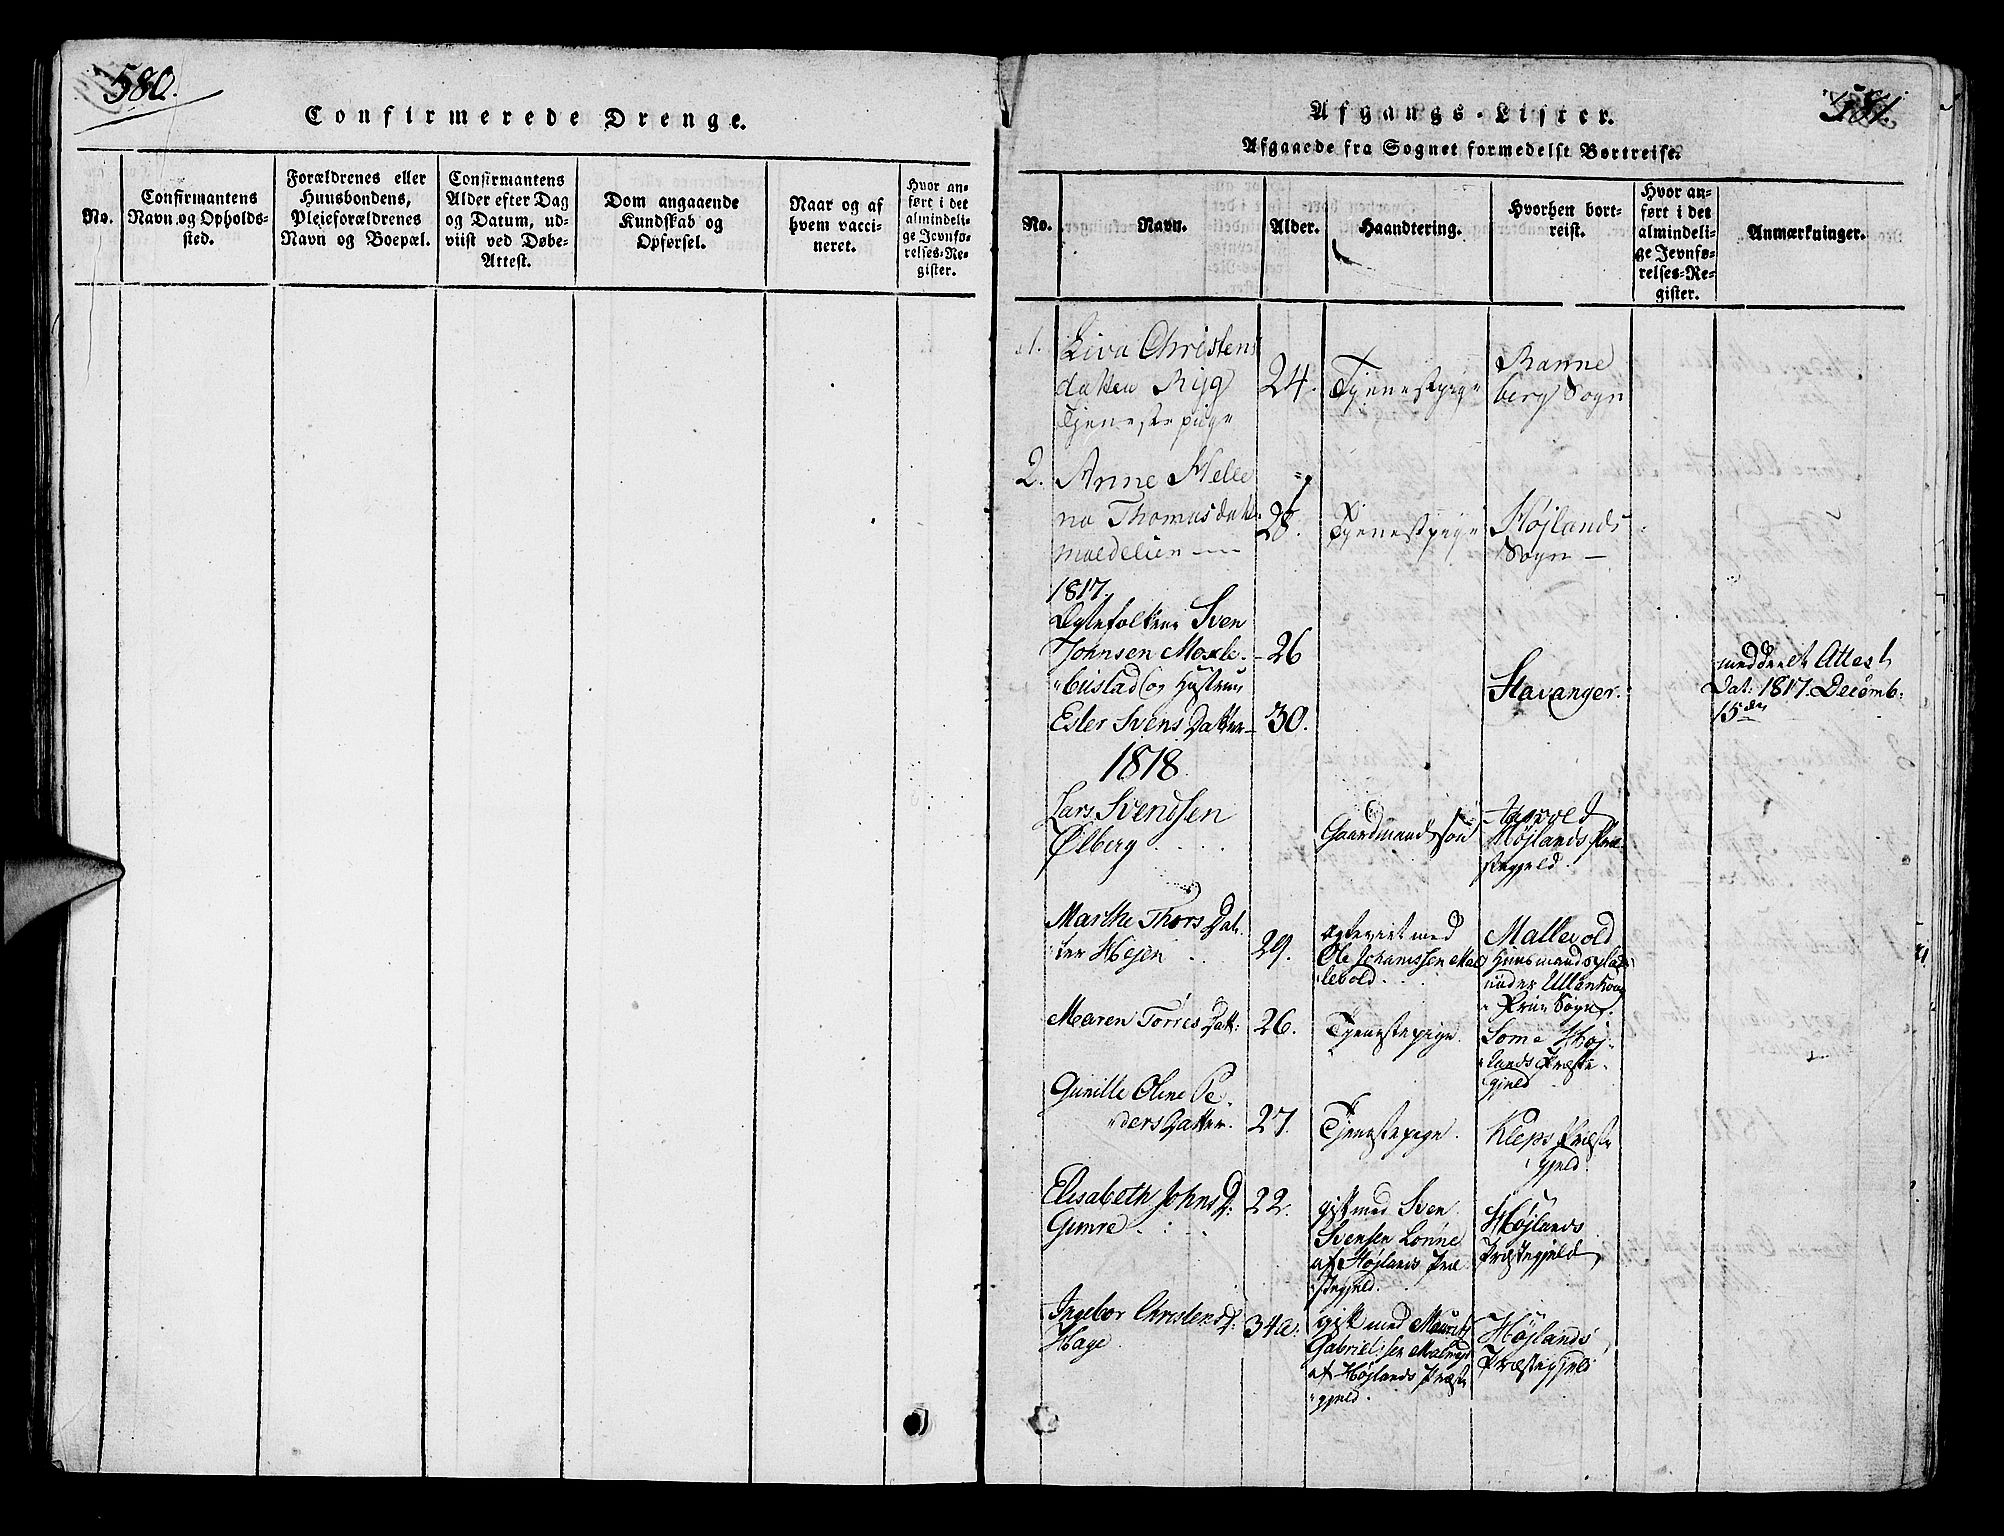 580.
Confirmerede Drenge.
No.
Confirmantens
Navn og Opholds-
sted.
Forældrenes eller
Huusbondens,
Plejeforældrenes
Navn og Boepæl.
Confirmantens
Alder efter Dag
og Datum, ud-
viist ved Døbe-
Attest.
Dom angaaende
Kundskab og
Opførsel.
Naar og af
hvem vacci-
neret.
Hvor an-
ført i det
almindeli-
ge Jevnfø-
relses-Re-
gister.
581.
Afgangs-Lister.
Afgaaede fra Sognet formedelst Bortreise.
No.
Navn.
Alder.
Haandtering.
Hvorhen bort-
reist.
Hvor an-
ført i det
almindeli-
ge Jevnfø-
relses-Re-
gister.
Anmærkninger.
1.
Liva Christens
datter Ryg
Tjenestepige
24.
Tjenestpige
Ranne
berg Sogn
2.
Anne Helle
na Thomasdat
28.
Tjenestpige
Højlands
Sogn
1817.
Ægtefolkene Sven
Johnsen
26
og Hustrue
Ester Svens Datter
30.
Stavanger.
meddeelt Attest
Dat: 1817. Decemb:
15den
1818
Lars Svendsen
Ølberg
Gaardmandssøn
Højlands Præ-
stegjeld.
Marthe Thors Dat-
ter Hojen
29.
Ægteviet med
Ole Johannssen Mal
lebold.
Mallevold
Huusmandsplads
under Ullenhoug
Maren Torres Datt:
26.
Tjenestepige.
Some Høj-
lands Præste-
gjeld
Gunille Oline Pe-
ders Datter.
27.
Tjenestepige.
Kleps Præste
gjeld.
Elisabeth Johns D:
Gimre
22.
gift med Sven
Svensen Lonne
af Højlands Præ
stegjeld.
Højlands
Præstegjeld
Ingebor Christens D:
Hage
34 a:
gift med Maurits
Gabrielsen
af Højlands Præste
gjeld.
Højlands
Præstegjeld